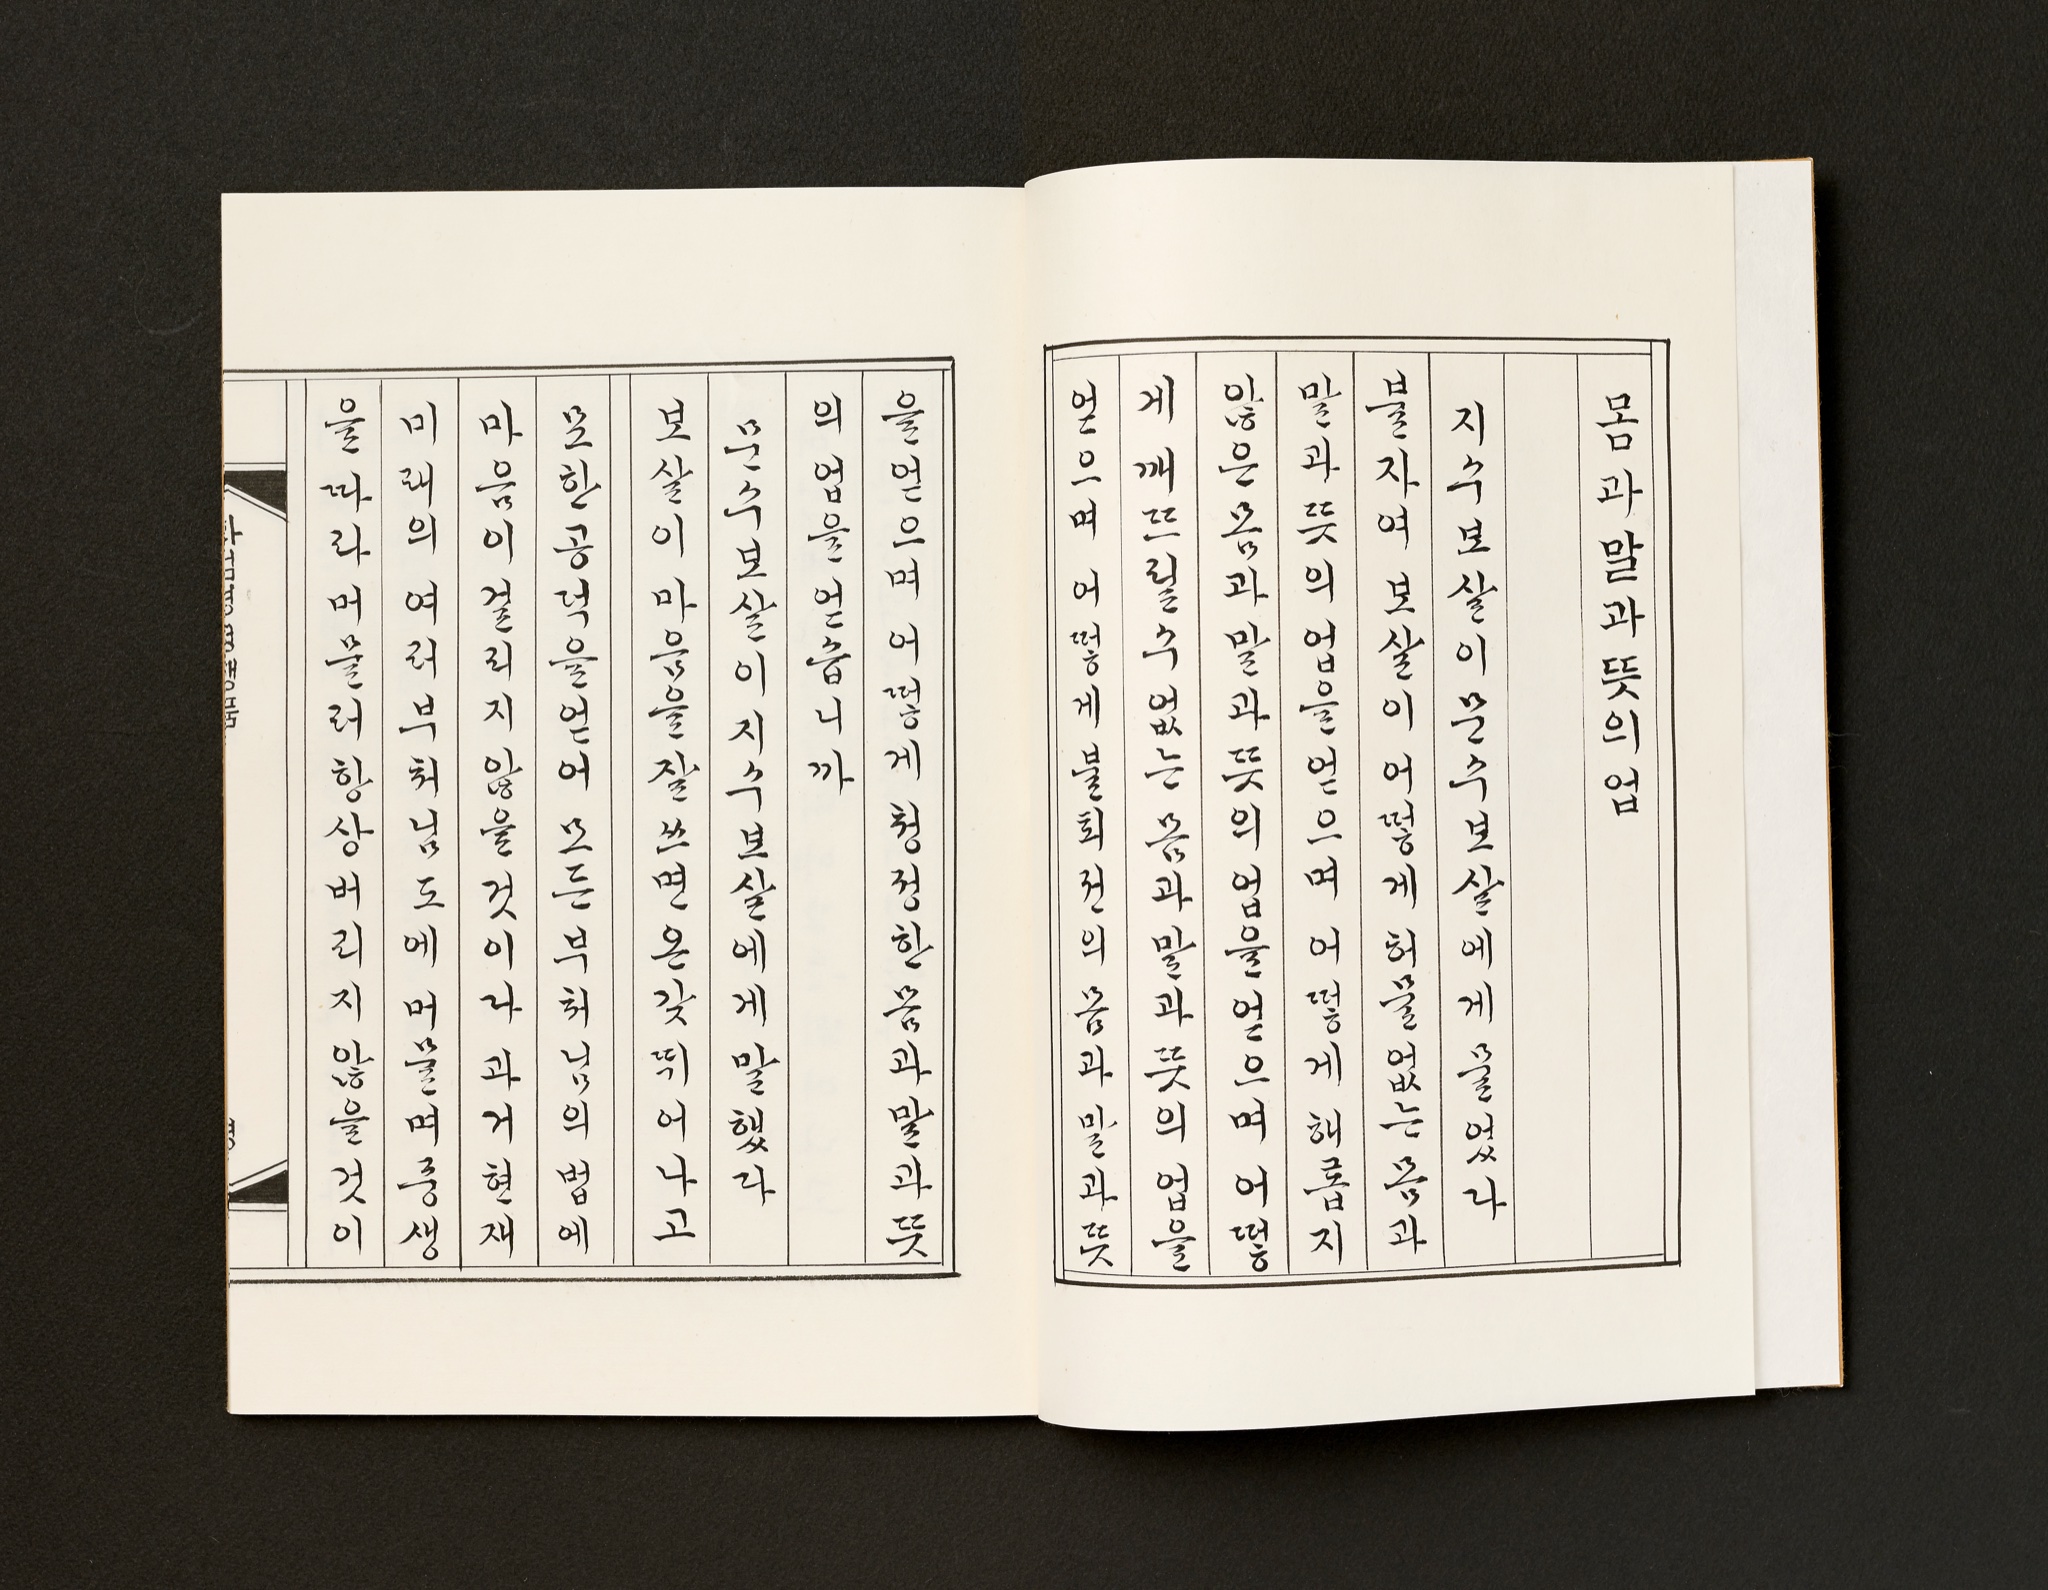 몸과 말과 뜻의 업
지수보살이 문수보살에게 물었다
불자여 보살이 어떻게 허물없는 몸과
말과 뜻의 업을 얻으며 어떻게 해롭지
않은 몸과 말과 뜻의 업을 얻으며 어떻
게 깨뜨릴 수 없는 몸과 말과 뜻의 업을
얻으며 어떻게 불퇴전의 몸과 말과 뜻
을 얻으며 어떻게 청정한 몸과 말과 뜻
의 업을 얻습니까
문수보살이 지수보살에게 말했다
보살이 마음을 잘 쓰면 온갖 뛰어나고
묘한 공덕을 얻어 모든 부처님의 법에
마음이 걸리지 않을 것이라 과거 현재
미래의 여러 부처님 도에 머물며 중생
을 따라 머물러 항상 버리지 않을 것이